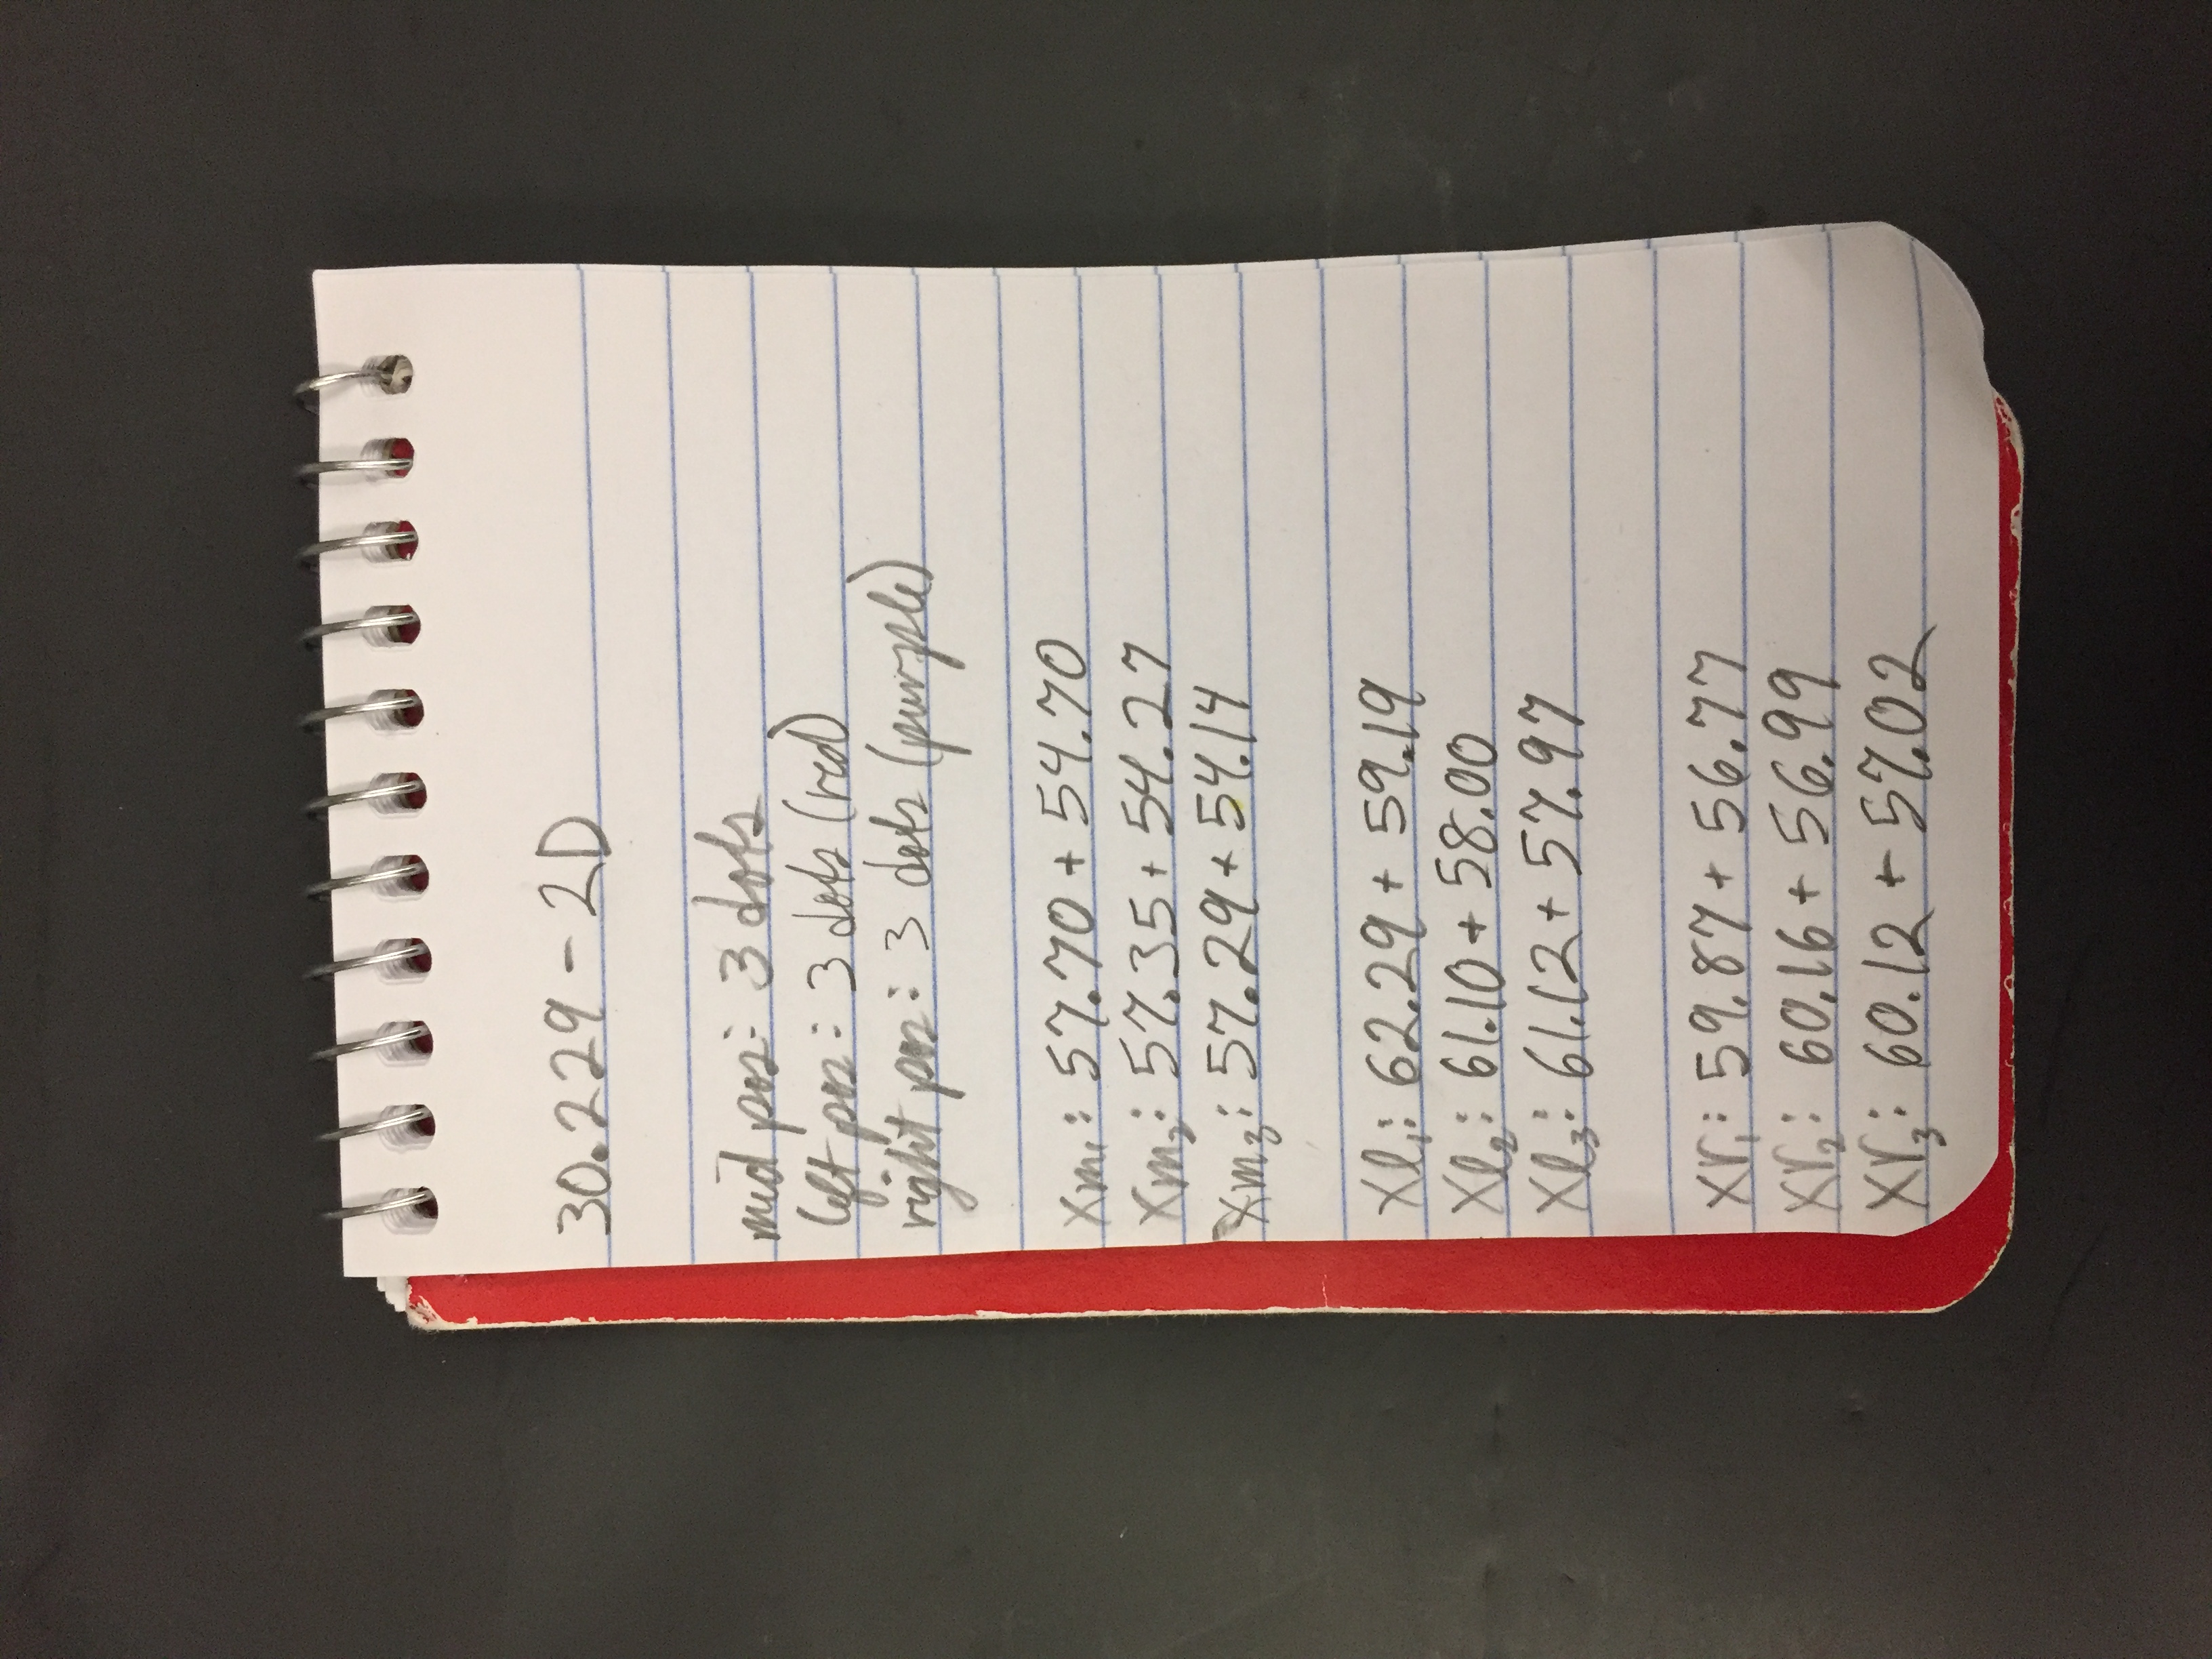 30.229 - 2D
mid pos: 3 dots
left pos: 3 dots (red)
right pos: 3 dots (purple)
xm₁: 57.70 + 54.70
xm₂: 57.35 + 54.27
xm₃: 57.29 + 54.14
xl₁: 62.29 + 59.19
xl₂: 61.10 + 58.00
xl₃: 61.12 + 57.97
xr₁: 59.87 + 56.77
xr₂: 60.16 + 56.99
xr₃: 60.12 + 57.02